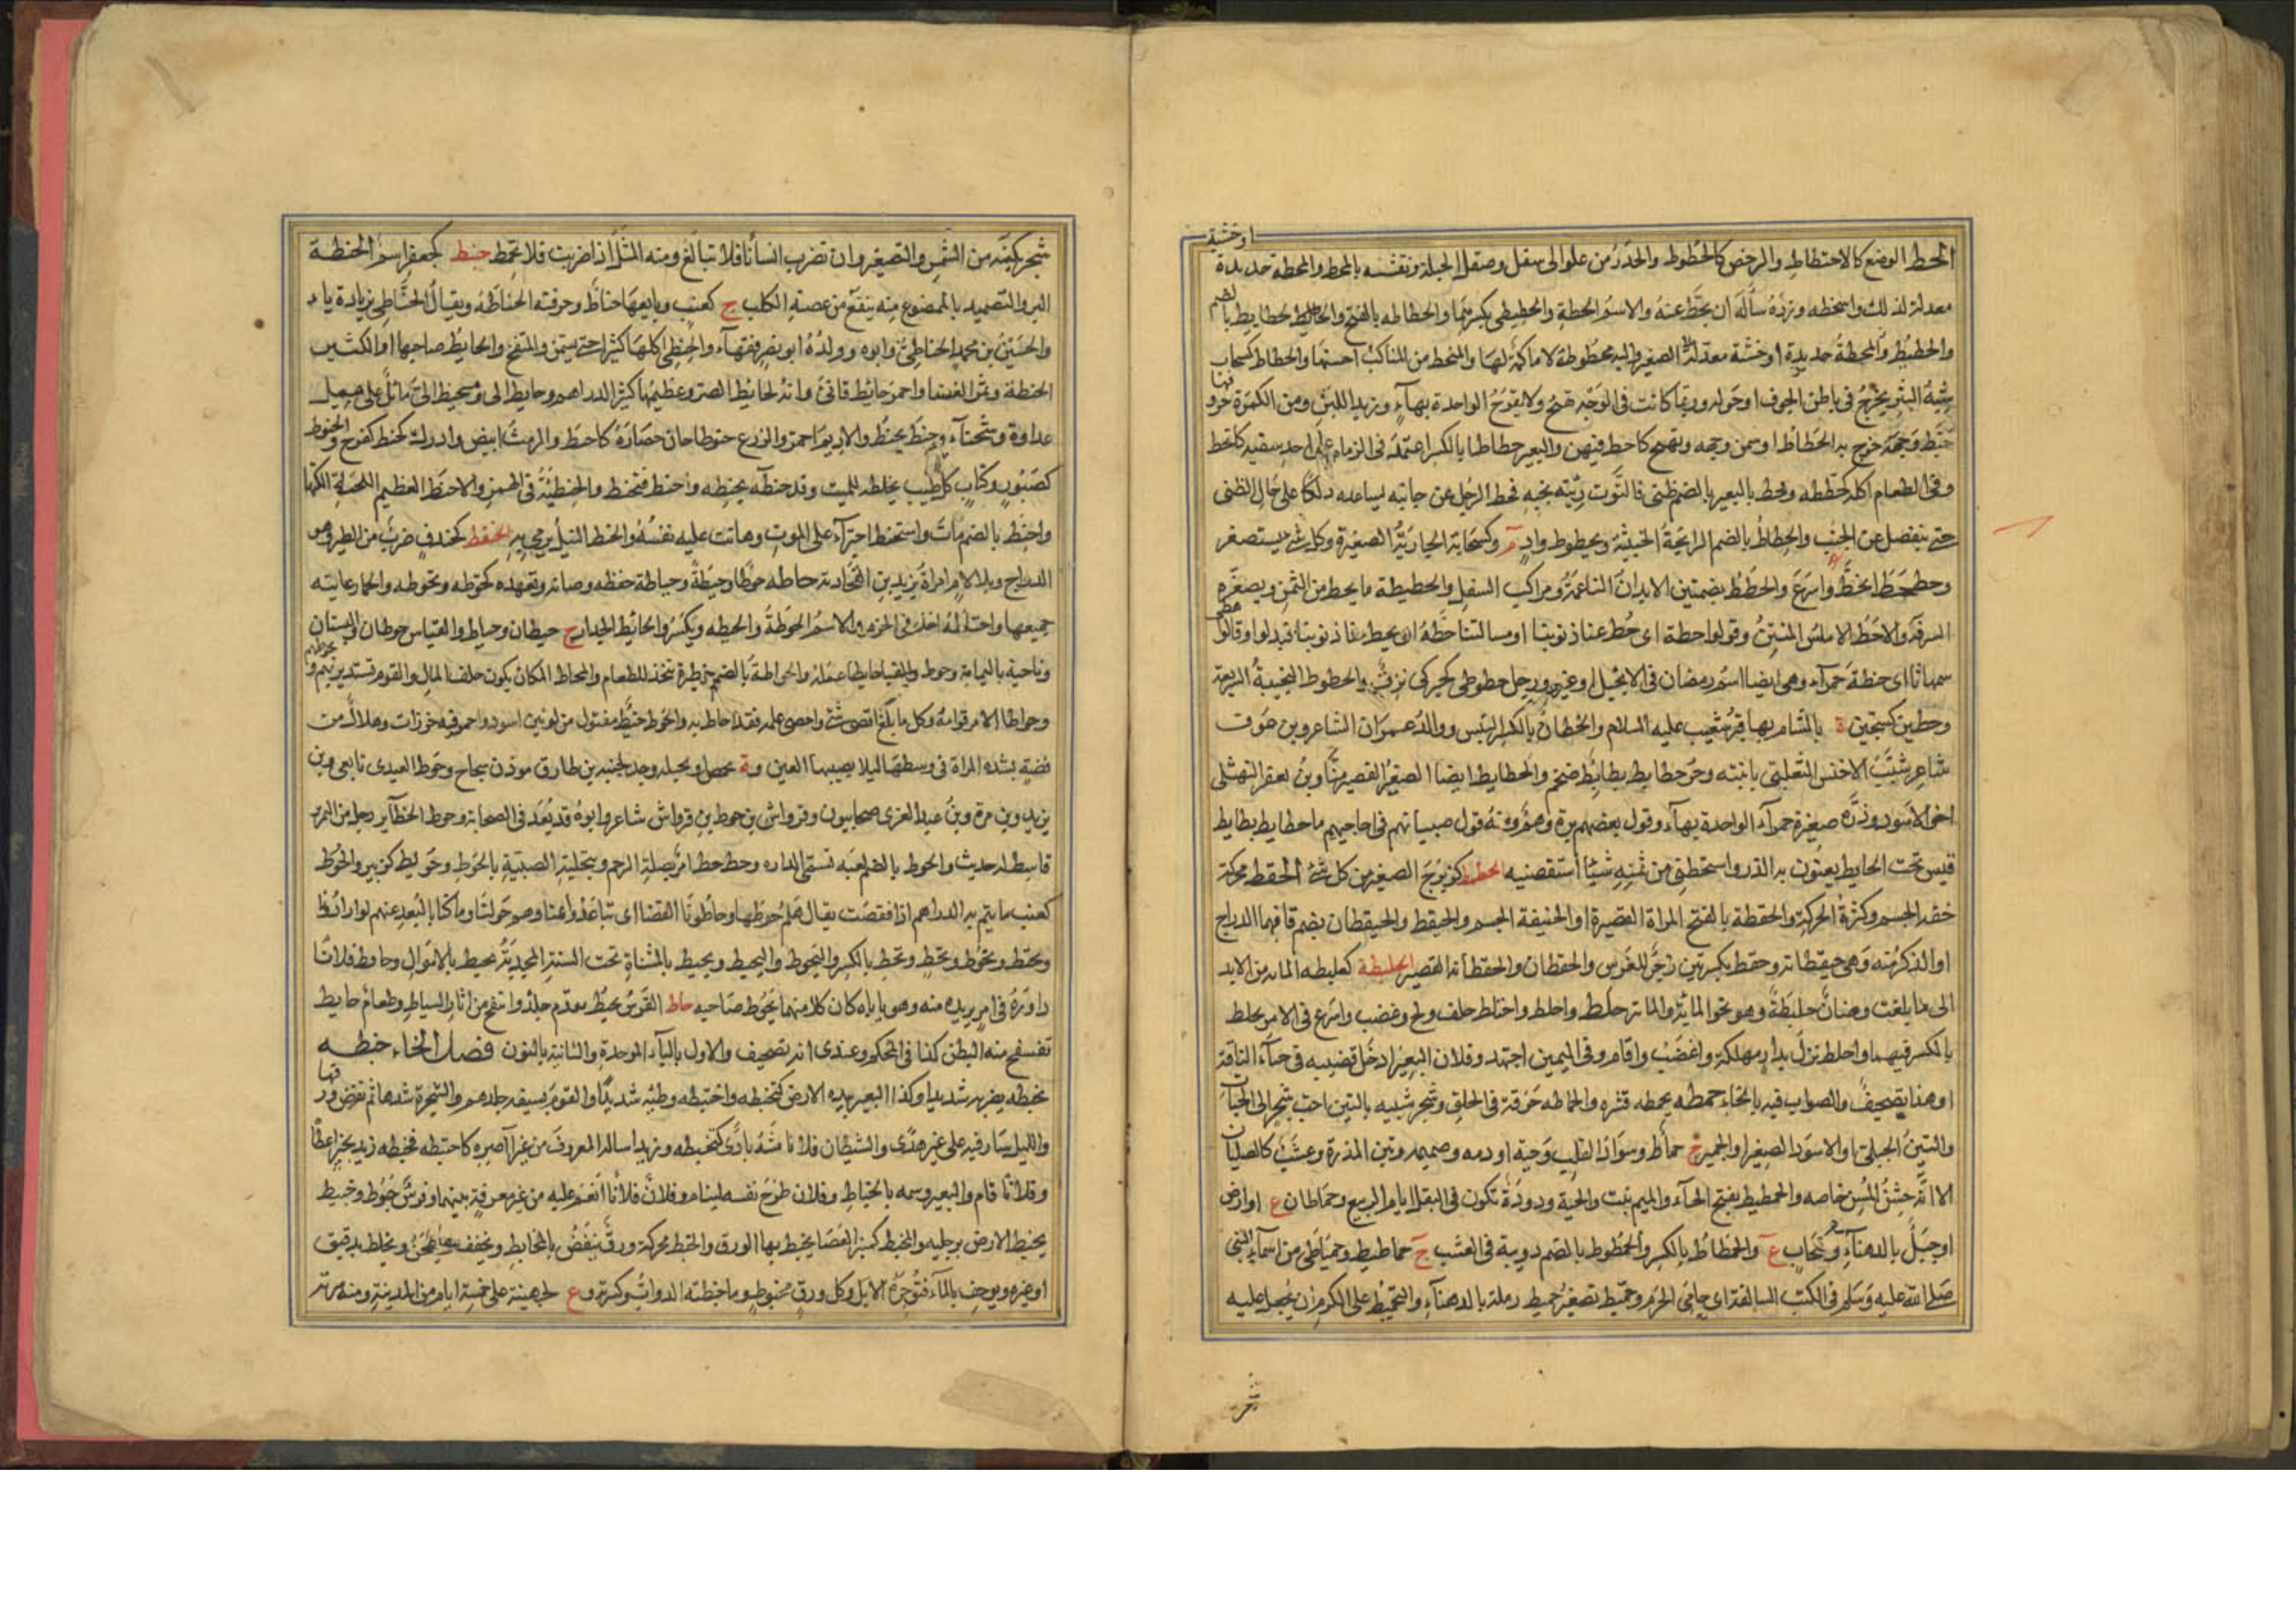 الحط الوضع كالاحتطاط والرخص كالحطوط والحدر من علو الى سفل وصقل الجلد ونقشه بالمحط والمحطة حديدة او خشبة
معدلة لذلك واستحطه وزره سأله ان يحط عنه والاسم الحطة والحطيطى بكسرهما والحطاطه بالفتح والحطيط بالضم
والحطيط والمحطة حديدة او خشبة معدلة الصغير والية محطوطة لا ماكمة لها والمنحط من المناكب احسنها والحطاط كسحاب
شبه البثر يخرج فى باطن الحوق او حوله وربما كانت فى الوجه تقيح ولا تقرح الواحدة بهاء وزبد اللبن ومن الكمرة حروفها
حط وجهه خرج به الحطاط او سمن وجهه وتهيج كاحط فيهن والبعير حطاطا بالكسر اعتمد فى الزمام على احد شقيه كانحط
وفى الطعام اكله كحططه وحط البعير بالضم طنى فالتوت رئته بجنبه فحط الرحل عن جانبه بساعده دلكا على حيال الطنى
حتى ينفصل عن الجنب والحطاط بالضم الرائحة الخبيثة ويحطوط واد م وكسحابة الجارية الصغيرة وكل شئ يستصغر
وحطحط انحط واسرع والحطط بضمتين الابدان الناعمة ومراكب السفل والحطيطة ما يحط من الثمن ويصغره
السرفة والاحط الاملس المتنين وقولوا حطة اى حط عنا ذنوبنا او مسالتنا حطة اى يحط عنا ذنوبنا فبدلوا وقالوا
سمهاثا اى حنطة حمراء وهى ايضا اسم رمضان فى الانجيل او غيره ورجل حطوطى كحبركى نزق والحطوط النجيبة السريعة
وحطين كسجين ة بالشام بها قبر شعيب عليه السلام والحطان بالكسر التيس ووالد عمران الشاعر وبن عوف
شاعر شبب الاخنس التغلبى بابنته وجرو حطايط بطايط ضخم والحطايط ايضا الصغير القصير منا وبن يعفر النهشلى
اخى الاسود وذرة صغيرة حمراء الواحدة بهاء وقول بعضهم برة وهم ومنه قول صبيانهم فى احاجيهم ما حطايط بطايط
تميس تحت الحايط يعنون به الذر واستحطنى من ثمنه شيئا استنقصنيه الحطمط كزبرج الصغير من كل شئ الحقط محركة
خفة الجسم وكثرة الحركة والحقطة بالفتح المراة القصيرة او الخفيفة الجسم والحيقط والحيقطان بضم قافهما الدراج
او الذكر منه وهى حيقطانة وحقط بكسرتين زجر للفرس والحقطان والحقطانة القصير الحلبطة كعلبطه المائة من الابل
الى ما بلغت وضان حلبطة وهو نحو المائة والمائتين حلط واحلط واحتلط حلف ولج وغضب واسرع فى الامر بحلط
بالكسر فيهما واحلط نزل بدار مهلكة واغضب واقام وفى اليمين اجتهد وفلان البعير ادخل قضيبه فى حياء الناقة
او هذا تصحيف والصواب فيه بالخاء حمطه يحمطه قشره والحماطه حرقة فى الحلق وشجر شبيه بالتين احب شجر الى الحيات
والتين الجبلى او الاسود الصغير او الجميز ج حماط وسواد القلب وحبة او دمه وصميمه وتبن الذرة وعشب كالصليان
الا انه خشن المس خاصه والحمطيط بفتح الحاء والميم نبت والحية ودودة تكون فى البقل ايام الربيع وحماطان ع او ارض
او جبل بالدهناء وكسحاب ع والحمطاط بالكسر والحمطوط بالضم دويبة فى العشب ج حماطيط وحمياطى من اسماء النبى
صلى الله عليه وسلم فى الكتب السالفة اى حامى الحرم وحميط تصغير حميط رملة بالدهناء والتحميط على الكرم ان يجعل عليه
شجر
شجر يكنه من الشمس والتصغير وان تضرب انسانا فلا تبالغ ومنه المثل اذا ضربت فلا تحمط حنبط كجعفر اسم الحنطة
البر والتضميد بالممضوغ منه ينفع من عضة الكلب ج كعنب وبايعها حناط وحرفته الحناطه ويقال الحناطى بزيادة ياء
والحسين بن محمد الحناطى وابوه وولده ابو نصر فقهاء والحنطى اكلها كثيرا حتى يسمن والمنتفخ والحايط صاحبها او الكثير
الحنطة وثمر الغضا واحمر حانط قانى وانه لحانط الصرة وعظيمها كثير الدراهم وحانط الى ومستحنط الى مائل على ميل
عداوة وشحناء وحنط يحنط والاديم احمر والزرع حنوطا حان حصاده كاحنط والرمث ابيض وادرك كحنط كفرح والحنوط
كصبور وكتاب كل طيب يخلط للميت وقد حنطه يحنطه واحنط فتحنط والحنطئة فى الهمز والاحنط العظيم اللحية الكثها
واحنط بالضم مات واستحنط اجترأ على الموت وهانت عليه نفسه والحنط النبل يرمى به الحنقط كخندف ضرب من الطير وهو
الدراج وبلا لام امراة يزيد بن القحادية حاطه حوطا وحيطة وحياطة حفظه وصانه وتعهده كحوطه وتحوطه والحمار عانته
جمعها واحتاط اخذ فى الحزم والاسم الحوطة والحيطه ويكسر والحائط الجدار ج حيطان وحياط والقياس حوطان والبستان
وناحية باليمامة وحوط حايطا عمله والحواطة بالضم حظيرة تتخذ للطعام والمحاط المكان يكون خلف المال والقوم تستدير بهم
وحواط الامر قوامه وكل ما بلغ اقصى شئ واحصى علمه فقد احاط به والحوط خيط مفتول من لونين اسود واحمر فيه خرزات وهلال من
فضة تشده المراة فى وسطها ليلا يصيبها العين وة بحمص او بجبله وجد لجنيد بن طارق موذن سجاح وحوط العبدى تابعى وبن
يزيد وبن مرة وبن عبد العزى صحابيون وقرواش بن حوط بن قرواش شاعر وابوه قد يعد فى الصحابة وحوط الحظاير رجل من النمر
قاسط له حديث والحوط بالضم لعبة تسمى الدارة وحط حط امر بصلة الرحم وبتحلية الصبية بالحوط وحويط كزبير والحوط
كعنب ما يتم به الدراهم اذا نقصت يقال هلم حوطها وحاطونا القصا اى تباعدوا عنا وهم حولنا وما كنا بالبعد عنهم لو ارادونا
وتحتط وتحوط وتحط وتحط بالكسر والتحوط والتحيط ويحيط بالمثناة تحت السنة المجدبة تحيط بالاموال وحاوط فلانا
داوره فى امر يريده منه وهو ياباه كان كلا منهما يحوط صاحبه حاط الفرس يحيط بعدم جلد وانتفخ من اثار السياط وطعام حايط
تنتفخ منه البطن كذا فى المحكم وعندى انه تصحيف والاول بالباء الموحدة والثانية بالنون فصل الخاء خبطه
يخبطه يضربه شديدا وكذا البعير بيده الارض كتخبطه واختبطه وطئه شديدا والقوم بسيفه جلدهم والشجرة شدها ثم نفض ورقها
والليل سار فيه على غير هدى والشيطان فلانا مسه باذى كتخبطه وزيدا ساله المعروف من غير آصره كاختبطه فخبطه زيد بخير اعطا
وفلانا قام والبعير وسمه بالخباط وفلان طرح نفسه لينام وفلان فلانا انعم عليه من غير معرفة بينهما وفرس خبوط وخبيط
يخبط الارض برجليه والمخبط كمنبر العصا يخبط بها الورق والخبط محركة ورق ينفض بالمخابط ويجفف ويطحن ويخلط بدقيق
او غيره ويوخف بالماء فتوجره الابل وكل ورق مخبوط وما خبطته الدواب وكسرته وع لجهينة على خمسة ايام من المدينة ومنه سرية